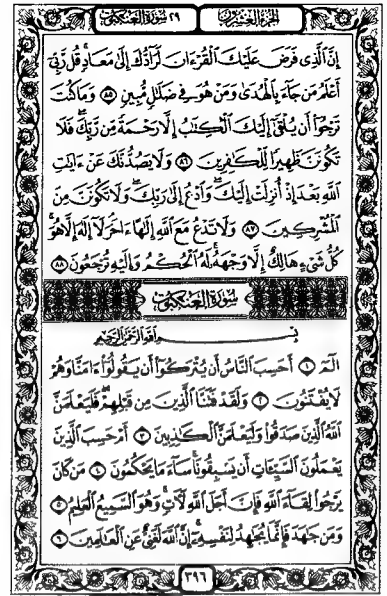 الجزء العشرون
٢٩ سورة العنكبوت
إِنَّ ٱلَّذِى فَرَضَ عَلَيْكَ ٱلْقُرْءَانَ لَرَآدُّكَ إِلَىٰ مَعَادٍ ۚ قُل رَّبِّىٓ
أَعْلَمُ مَن جَآءَ بِٱلْهُدَىٰ وَمَنْ هُوَ فِى ضَلَٰلٍ مُّبِينٍ ٨٥ وَمَا كُنتَ
تَرْجُوٓا۟ أَن يُلْقَىٰٓ إِلَيْكَ ٱلْكِتَٰبُ إِلَّا رَحْمَةً مِّن رَّبِّكَ ۖ فَلَا
تَكُونَنَّ ظَهِيرًا لِّلْكَٰفِرِينَ ٨٦ وَلَا يَصُدُّنَّكَ عَنْ ءَايَٰتِ
ٱللَّهِ بَعْدَ إِذْ أُنزِلَتْ إِلَيْكَ ۖ وَٱدْعُ إِلَىٰ رَبِّكَ ۖ وَلَا تَكُونَنَّ مِنَ
ٱلْمُشْرِكِينَ ٨٧ وَلَا تَدْعُ مَعَ ٱللَّهِ إِلَٰهًا ءَاخَرَ ۘ لَآ إِلَٰهَ إِلَّا هُوَ ۚ
كُلُّ شَىْءٍ هَالِكٌ إِلَّا وَجْهَهُۥ ۚ لَهُ ٱلْحُكْمُ وَإِلَيْهِ تُرْجَعُونَ ٨٨
سورة العنكبوت
بِسْمِ ٱللَّهِ ٱلرَّحْمَٰنِ ٱلرَّحِيمِ
الٓمٓ ١ أَحَسِبَ ٱلنَّاسُ أَن يُتْرَكُوٓا۟ أَن يَقُولُوٓا۟ ءَامَنَّا وَهُمْ
لَا يُفْتَنُونَ ٢ وَلَقَدْ فَتَنَّا ٱلَّذِينَ مِن قَبْلِهِمْ ۖ فَلَيَعْلَمَنَّ
ٱللَّهُ ٱلَّذِينَ صَدَقُوا۟ وَلَيَعْلَمَنَّ ٱلْكَٰذِبِينَ ٣ أَمْ حَسِبَ ٱلَّذِينَ
يَعْمَلُونَ ٱلسَّيِّـَٔاتِ أَن يَسْبِقُونَا ۚ سَآءَ مَا يَحْكُمُونَ ٤ مَن كَانَ
يَرْجُوا۟ لِقَآءَ ٱللَّهِ فَإِنَّ أَجَلَ ٱللَّهِ لَـَٔاتٍ ۚ وَهُوَ ٱلسَّمِيعُ ٱلْعَلِيمُ ٥
وَمَن جَٰهَدَ فَإِنَّمَا يُجَٰهِدُ لِنَفْسِهِۦٓ ۚ إِنَّ ٱللَّهَ لَغَنِىٌّ عَنِ ٱلْعَٰلَمِينَ ٦
٣٩٦